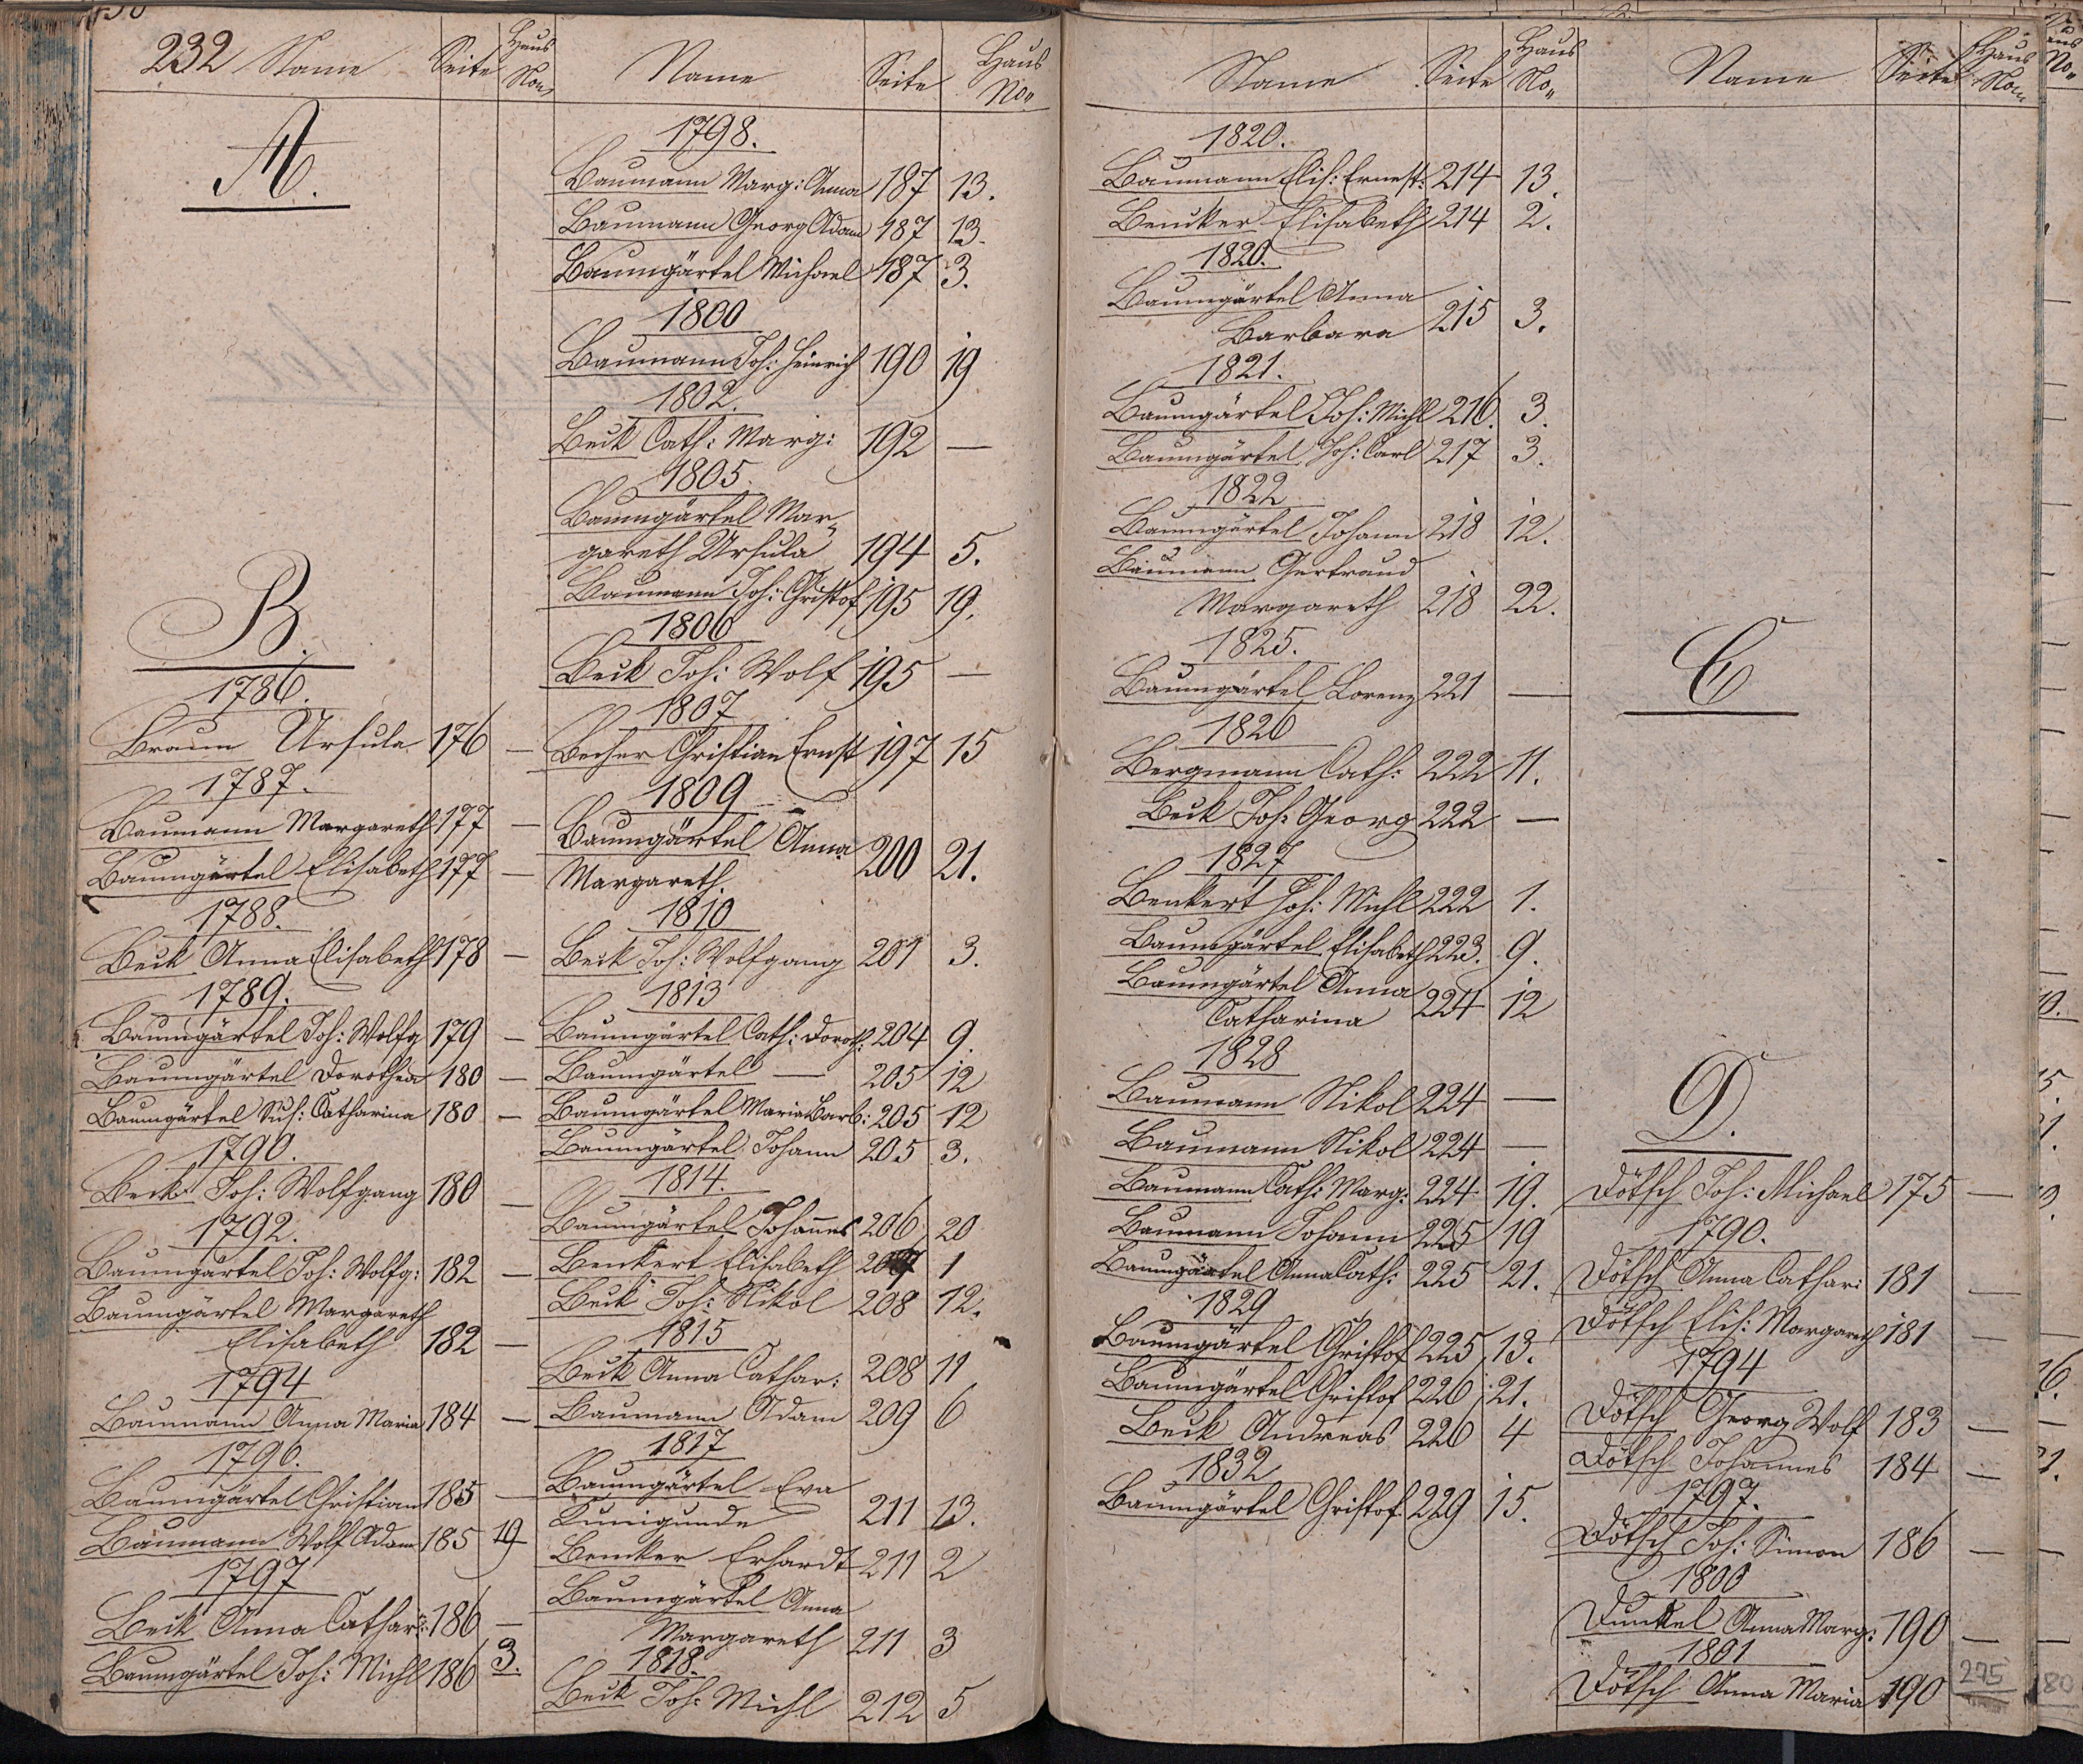 232 Name Seite Haus No
A.
B.
1786.
Braun Ursula 176 —
1787.
Baumann Margareth 177 —
Baumgärtel Elisabeth 177 —
1788.
Beck Anna Elisabeth 178 —
1789.
Baumgärtel Joh: Wolfg 179 —
Baumgärtel Dorothea 180 —
Baumgärtel Sus: Catharina 180 —
1790.
Beck Joh: Wolfgang 180 —
1792.
Baumgärtel Joh: Wolfg: 182 —
Baumgärtel Margareth
Elisabeth 182 —
1794
Baumann Anna Maria 184 —
1796.
Baumgärtel Christian 185 —
Baumann Wolf Adam 185 19
1797
Beck Anna Cathar: 186 —
Baumgärtel Joh: Michl 186 3.
Name Seite Haus No
1798.
Baumann Marg: Anna 187 13.
Baumann Georg Adam 187 13.
Baumgärtel Michael 187 3.
1800
Baumann Joh: Heinrich 190 19
1802.
Beck Cath: Marg: 192 —
1805.
Baumgärtel Mar-
gareth Ursula 194 5.
Baumann Joh: Christof 195 19.
1806
Beck Joh: Wolf 195 —
1807
Becher Christian Ernst 197 15
1809
Baumgärtel Anna
Margareth. 200 21.
1810
Beck Joh: Wolfgang 201 3.
1813
Baumgärtel Cath: Doroth: 204 9.
Baumgärtel — 205 12
Baumgärtel Maria Barb: 205 12
Baumgärtel Johann 205 3.
1814.
Baumgärtel Johannes 206 20
Benkert Elisabeth 207 1
Beck Joh: Nikol 208 12.
1815
Beck Anna Cathar: 208 11
Baumann Adam 209 6
1817
Baumgärtel Eva
Kunigunde 211 13.
Bencker Erhardt 211 2
Baumgärtel Anna
Margareth 211 3
1818.
Beck Joh: Michl 212 5
Name Seite Haus No
1820.
Baumann Elis: Ernest: 214 13.
Bencker Elisabeth 214 2.
1820.
Baumgärtel Anna
Barbara 215 3.
1821.
Baumgärtel Joh: Michl 216. 3.
Baumgärtel Joh: Carl 217 3.
1822
Baumgärtel Johann 218 12.
Baumann Gertraud
Margareth 218 22.
1825.
Baumgärtel Lorenz 221 —
1826
Bergmann Cath: 222 11.
Beck Joh: Georg 222 —
1827
Benkert Joh: Michl 222 1.
Baumgärtel Elisabeth 223. 9.
Baumgärtel Anna
Catharina 224 12
1828
Baumann Nikol 224 —
Baumann Nikol 224 —
Baumann Cath: Marg: 224 19.
Baumann Johann 225 19
Baumgärtel Anna Cath: 225 21.
1829
Baumgärtel Christof 225 13.
Baumgärtel Christof 226 21.
Beck Andreas 226 4
1832
Baumgärtel Christof 229 15.
Name Seite Haus No
C
D.
Dötsch Joh: Michael 175 —
1790.
Dötsch Anna Cathar: 181 —
Dötsch Elis: Margareth 181 —
1794
Dötsch Georg Wolf 183 —
Dötsch Johannes 184 —
1797.
Dötsch Joh: Simon 186 —
1800
Dunkel Anna Marg: 190 —
1801
Dötsch Anna Maria 190
275